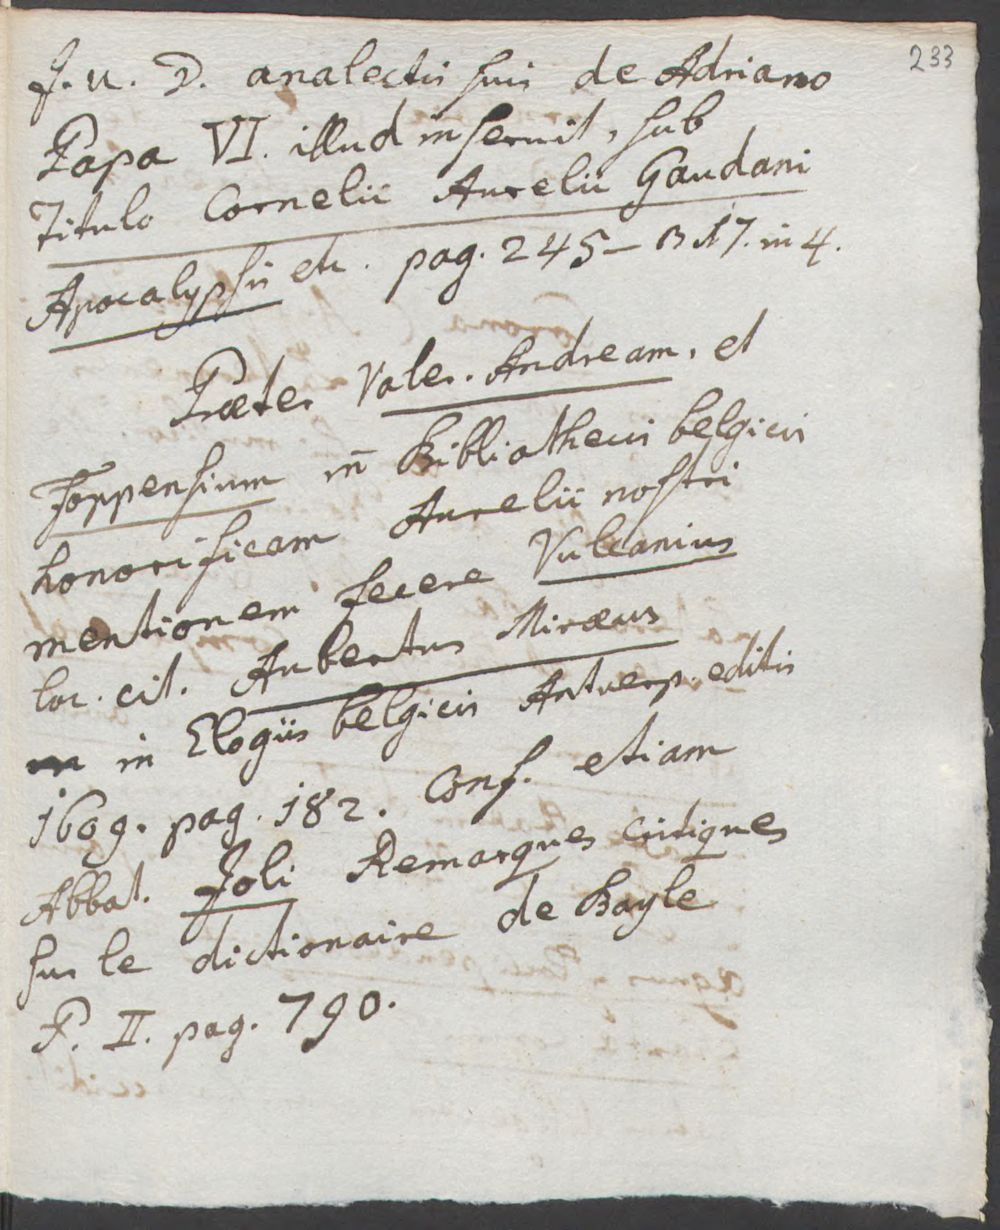 233
J. U. D. analectis suis de Adriano
Papa VI. illud inseruit, sub
Titulo Cornelii Aurelii Gaudani
Apocalypsis etc. pag. 245 – 317. in 4.
Præter Valer. Andream, et
Foppensium in Bibliothecis belgicis
honorificam Aurelii nostri
mentionem fecere Vulcanius
loc. cit. Aubertus Miræus
in Elogiis belgicis Antverp. editis
1609. pag. 182. Conf. etiam
Abbat. Joli Remarques critiques
sur le dictionaire de Bayle
P. II. pag. 790.